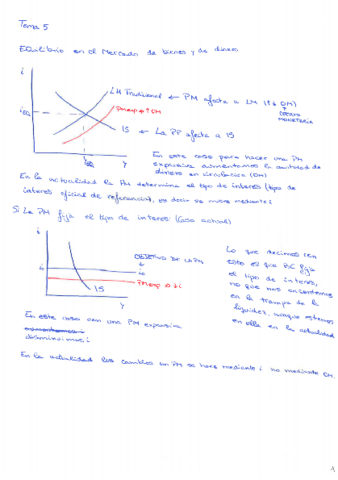 Tema 5
Equilibrio en el Mercado de bienes y de dinero
i
LM Tradicional ← PM afecta a LM (↑↓ OM)
OFERTA
MONETARIA
PM exp ⇒ ↑ OM
IS ← La PF afecta a IS
Y
En este caso para hacer una PM
expansiva aumentamos la cantidad de
dinero en circulación (OM)
En la actualidad la PM determina el tipo de interés (tipo de
interés oficial de referencia), es decir se mueve mediante i
Si la PM fija el tipo de interés (caso actual)
i
OBJETIVO DE LA PM
PM exp ⇒ ↓ i
IS
Y
Lo que decimos con
esto es que BC fija
el tipo de interés,
no que nos encontremos
en la trampa de la
liquidez, aunque estemos
en ella en la actualidad
En este caso con una PM expansiva
disminuimos i
En la actualidad los cambios en PM se hace mediante i no mediante OM.